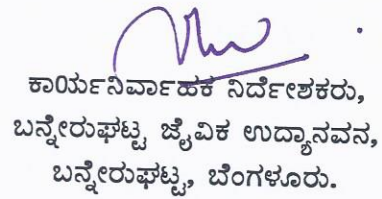 ಕಾರ್ಯನಿರ್ವಾಹಕ ನಿರ್ದೇಶಕರು,
ಬನ್ನೇರುಘಟ್ಟ ಜೈವಿಕ ಉದ್ಯಾನವನ,
ಬನ್ನೇರುಘಟ್ಟ, ಬೆಂಗಳೂರು.